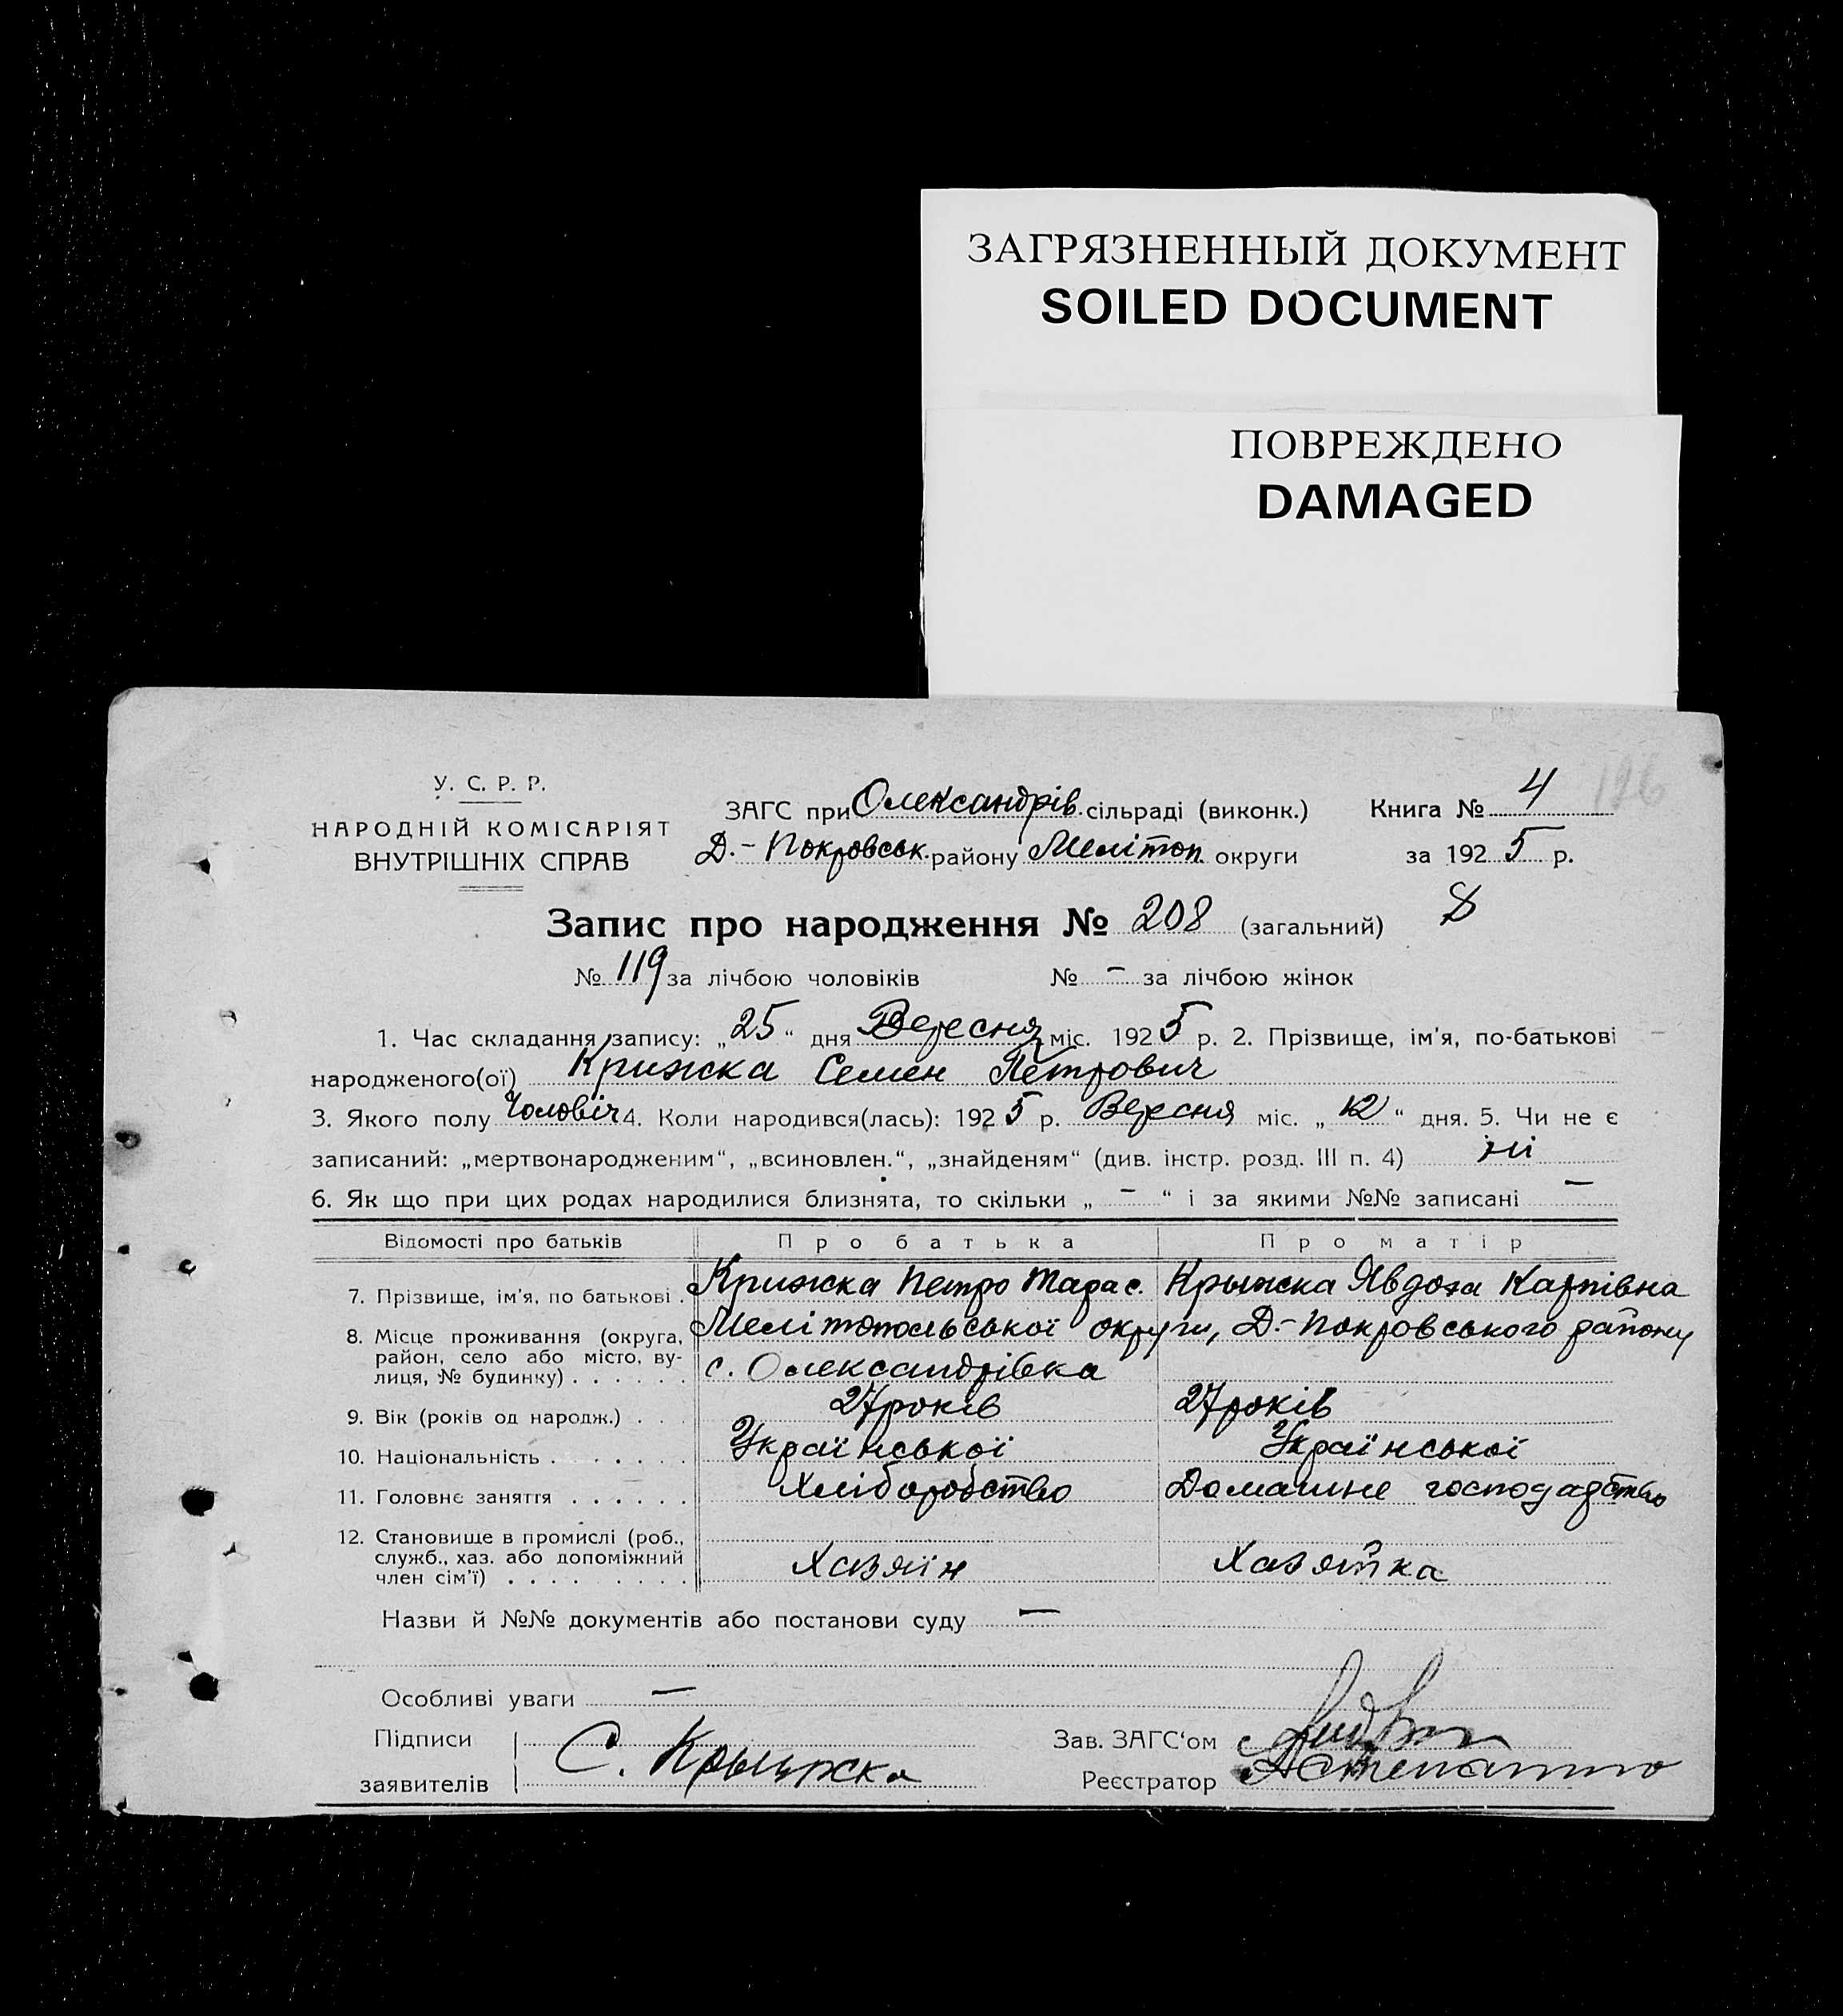 ЗАГРЯЗНЕННЫЙ ДОКУМЕНТ
SOILED DOCUMENT
ПОВРЕЖДЕНО
DAMAGED
У. С. Р. Р.
НАРОДНІЙ КОМІСАРІЯТ
ВНУТРІШНІХ СПРАВ
ЗАГС при Олександрів. сільраді (виконк.)
Д.-Покровськ. району Мелітоп округи
Книга № 4
126
за 1925 р.
Запис про народження № 208 (загальний)
8
№ 119 за лічбою чоловіків № – за лічбою жінок
1. Час складання запису: „25“ дня Вересня міс. 1925 р. 2. Прізвище, ім'я, по-батькові
народженого(ої) Крижка Семен Петрович
3. Якого полу Чоловіч 4. Коли народився(лась): 1925 р. Вересня міс. „12“ дня. 5. Чи не є
записаний: „мертвонародженим“, „всиновлен.“, „знайденям“ (див. інстр. розд. III п. 4) ні
6. Як що при цих родах народилися близнята, то скільки „ – “ і за якими №№ записані –
Відомості про батьків Про батька Про матір
7. Прізвище, ім'я, по батькові . Крижка Петро Тарас. Крыжска Явдоха Карпівна
8. Місце проживання (округа, Мелітопольської округи, Д.-Покровського району
район, село або місто, ву- с. Олександрівка
лиця, № будинку) . . . . . .
9. Вік (років од народж.) . . . 27 років 27 років
10. Національність . . . . . . Української Української
11. Головнє заняття . . . . . . Хліборобство Домашне господарство
12. Становище в промислі (роб.,
служб., хаз. або допоміжний Хазяїн Хазяйка
член сім'ї) . . . . . . . . .
Назви й №№ документів або постанови суду –
Особливі уваги –
Підписи
заявителів С. Крыжска
Зав. ЗАГС'ом
Реєстратор